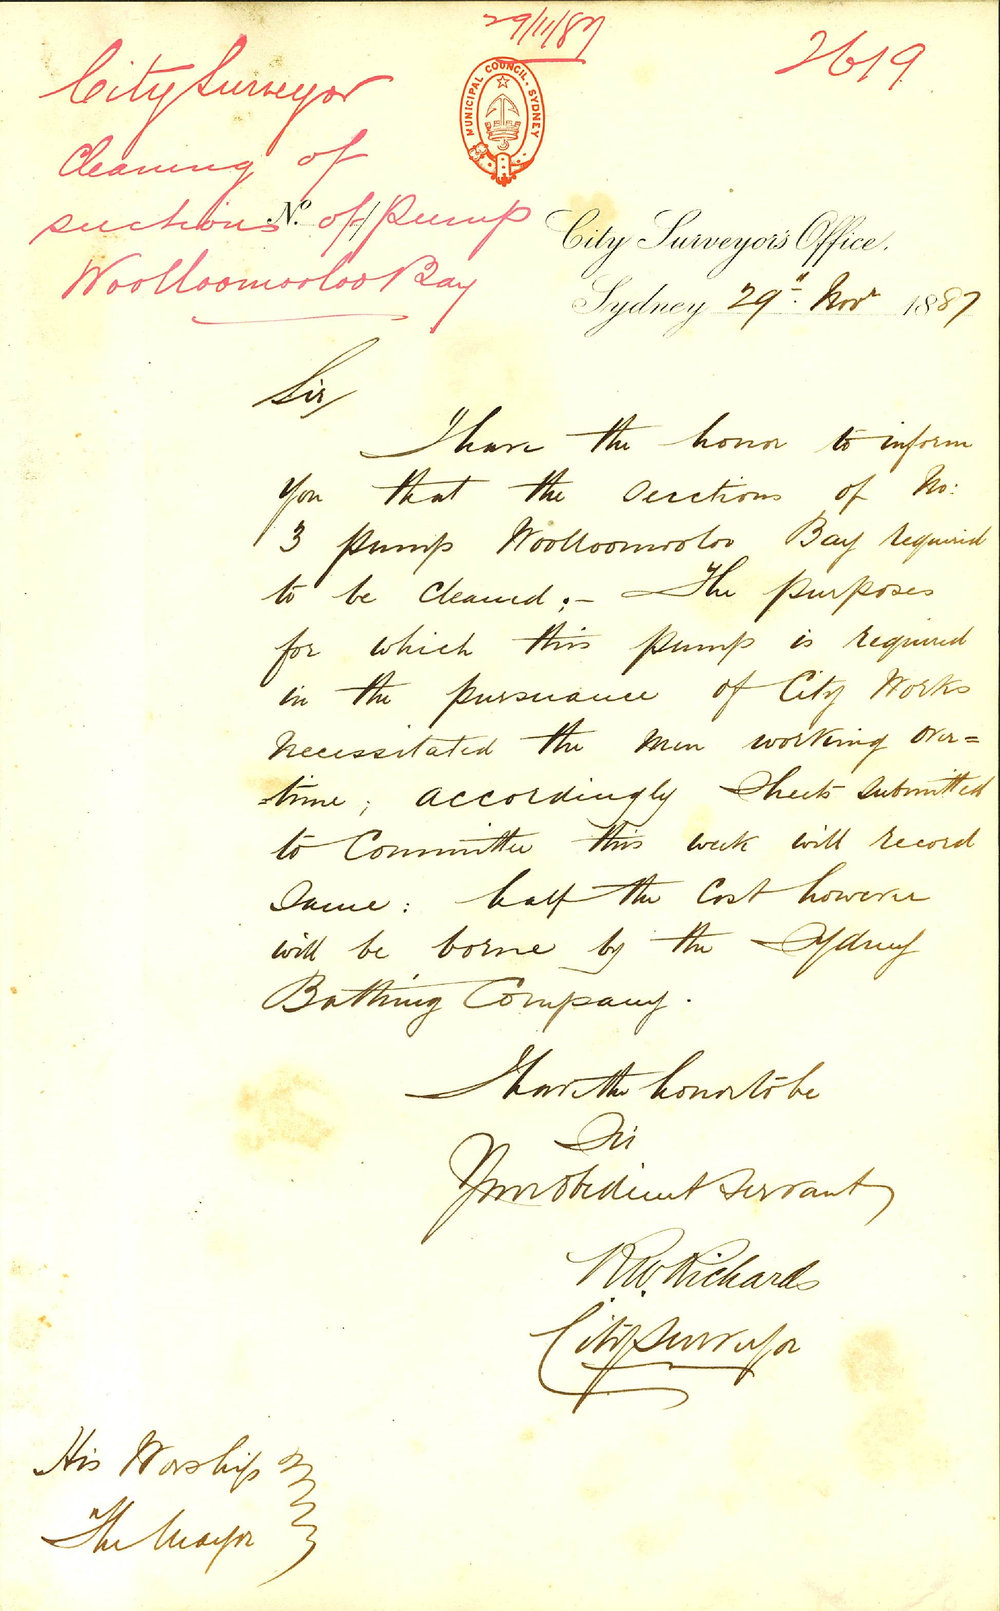 29/11/87
2619
City Surveyor
Cleaning of
suctions of pump
Woolloomooloo Bay
MUNICIPAL COUNCIL. SYDNEY
No.
City Surveyor's Office,
Sydney 29th Novr 1887
Sir
I have the honor to inform
you that the Suctions of No:
3 pump Woolloomooloo Bay required
to be cleaned;- The purposes
for which this pump is required
in the pursuance of City Works
necessitated the men working over=
time; accordingly Sheets submitted
to Committee this week will record
same: half the cost however
will be borne by the Sydney
Bathing Company.
I have the honor to be
Sir
Your Obedient Servant
R.W. Richards
City Surveyor
His Worship
The Mayor